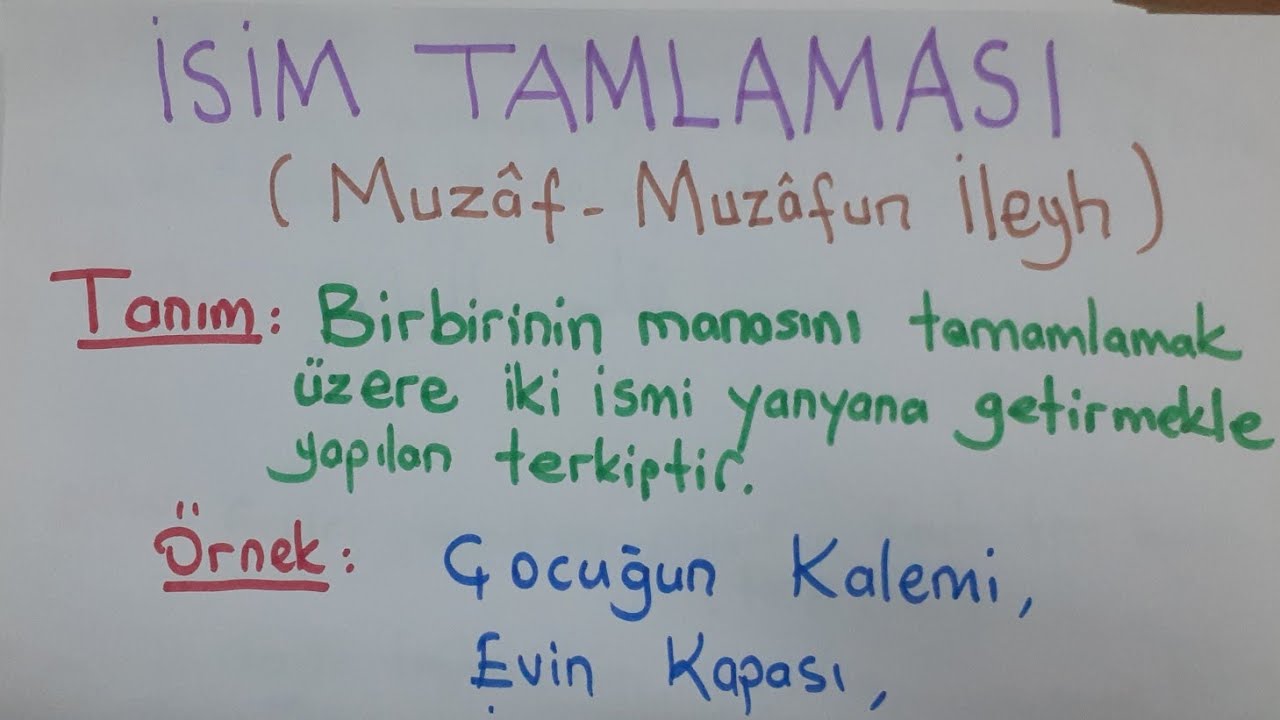 İSİM TAMLAMASI
( Muzâf - Muzâfun İleyh )
Tanım: Birbirinin manasını tamamlamak
üzere iki ismi yanyana getirmekle
yapılan terkiptir.
Örnek: Çocuğun Kalemi,
Evin Kapası,